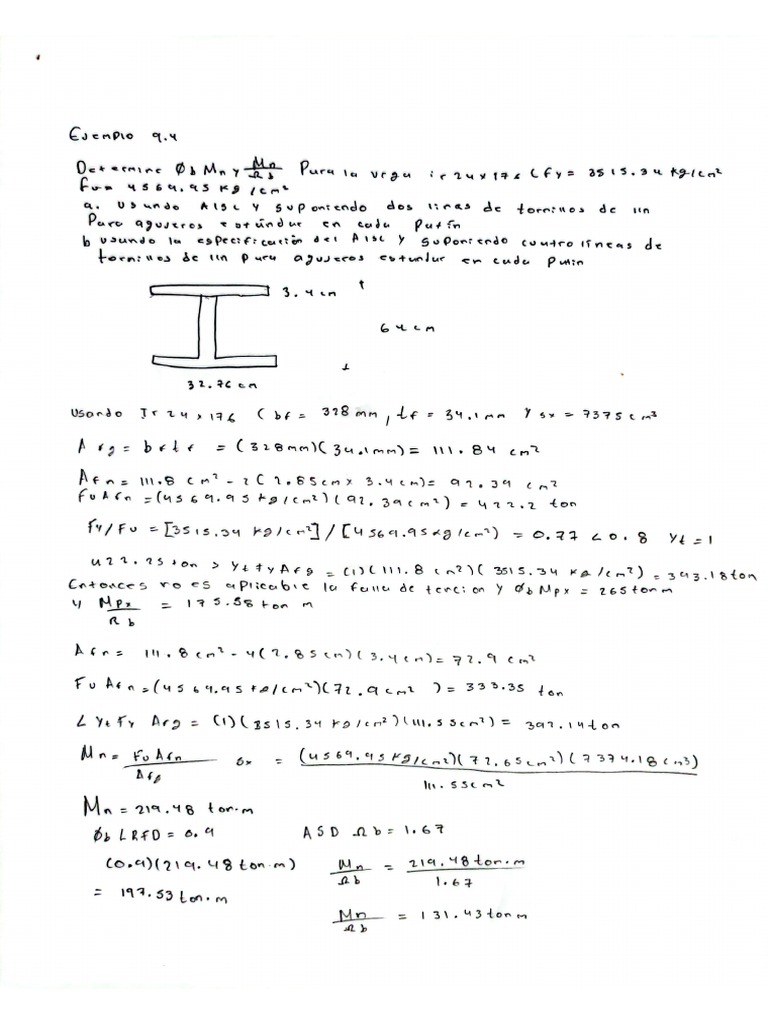 Ejemplo 9.4
Determine Øb Mn y Mn/Ωb Para la vega ir 24x176 (fy = 3515.34 kg/cm²
fu = 4569.95 kg/cm²
a. usando AISC y suponiendo dos lineas de tornillos de 1in
Para agujeros estándar en cada Patín
b usando la especificación del AISC y suponiendo cuatro líneas de
tornillos de 1in para agujeros estandar en cada Patin
3.4cm
64cm
32.76 cm
Usando Ir 24x176 (bf = 328 mm, tf = 34.1mm y sx = 7375 cm³
Afg = bf tf = (328mm)(34.1mm) = 111.84 cm²
Afn = 111.8 cm² - 2(2.85cm x 3.4cm) = 92.39 cm²
Fu Afn = (4569.95 kg/cm²)(92.39cm²) = 422.2 ton
Fy/Fu = [3515.34 kg/cm²]/[4569.95kg/cm²) = 0.77 < 0.8 Yt = 1
422.25 ton > Yt fy Afg = (1)(111.8 cm²)(3515.34 kg/cm²) = 393.18ton
Entonces no es aplicable la falla de tencion y Øb Mpx = 265 ton m
y Mpx/Ωb = 175.58 ton m
Afn = 111.8cm² - 4(2.85cm)(3.4cm) = 72.9 cm²
Fu Afn = (4569.95kg/cm²)(72.9cm²) = 333.35 ton
< Yt Fy Afg = (1)(3515.34 kg/cm²)(111.55cm²) = 392.14ton
Mn = Fu Afn/Afg Sx = (4569.95 kg/cm²)(72.65cm²)(7374.18cm³)/111.55cm²
Mn = 219.48 ton·m
Øb LRFD = 0.9 ASD Ωb = 1.67
(0.9)(219.48 ton·m) Mn/Ωb = 219.48ton·m/1.67
= 197.53 ton·m
Mn/Ωb = 131.43 ton m